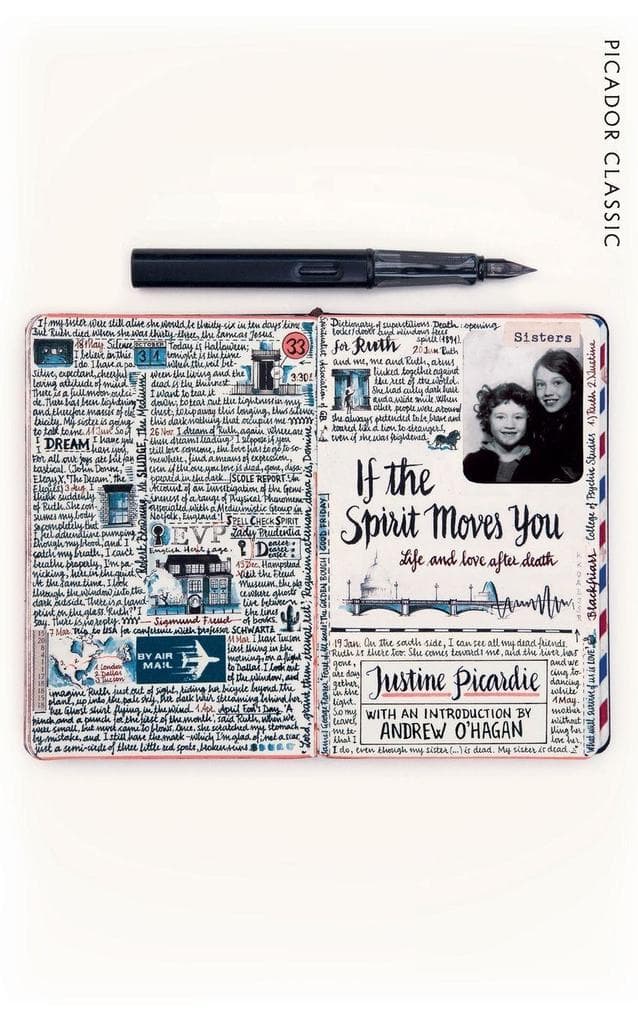 PICADOR CLASSIC
If my sister were still alive she would be thirty-six in ten days' time
But Ruth died when she was thirty-three, the same as Jesus.
Silence
OCTOBER
31
Today is Halloween;
tonight is the time
when the veil be-
tween the living and the
dead is the thinnest.
I want to tear it
down, to tear out the tightness in my
chest, to rip away this longing, this silence,
this dark nothing that occupies me
33
3:30
I believe in this
I do I have a po-
sitive, expectant, cheerful
loving attitude of mind.
There is a full moon outside
and therefore masses of elec-
tricity. My sister is going
to talk to me
DREAM
I have you
For all our joys are but fan-
tastical. (John Donne,
Elegy X, 'The Dream', the
Elegies)
I think suddenly
of Ruth. She con-
sumes my body
so completely that
I feel adrenaline pumping
through my blood, and I can't
catch my breath, I can't
breathe properly, I'm pa-
nicking, here in the quiet
at the same time. I look
through the window into the
dark outside. There is a hand
print on the glass. 'Ruth?' I
say. There is no reply.
26 Nov I dream of Ruth again. Where are
these dreams leading? I suppose if you
still love someone, the love has to go so-
mewhere, find a means of expression,
even if the one you love is dead, gone, disa-
ppeared in the dark.
SCOLE REPORT: An
Account of an Investigation of the Genu-
ineness of a range of Physical Phenomena
associated with a Mediumistic Group in
Norfolk, England
SPELL CHECK SPIRIT
EVP
Lady Prudentia
English Heritage
13 Dec. Hampstead
Visit the Freud
Museum, the pl-
ace where ghosts
live between
the lines
of books.
Sigmund Freud
SCHWARTZ
7 Mar. Trip to USA for conference with professor
1 London
2 Dallas
3 Tucson
BY AIR
MAIL
11 Mar. I leave Tucson
first thing in the
morning, on a flight
to Dallas. I look out
of the window, and
imagine Ruth just out of sight, riding her bicycle beyond the
plane, up into the pale sky, her dark hair streaming behind her
her Ghost shirt flying in the wind. 1 Apr. April Fool's Day. 'A
pinch and a punch for the first of the month,' said Ruth, when we
were small, but never came to blows. Once, she scratched my stomach
by mistake, and I still have the mark – which I'm glad of; not a scar,
just a semi-circle of three little red spots, broken veins
Dictionary of superstitions. Death: opening
locks/doors and windows frees
spirit (1891).
for Ruth
20 Jun Ruth
and me, me and Ruth, arms
linked together against
the rest of the world.
She had curly dark hair
and a wide smile. When
other people were around
she always pretended to be brave and
roared like a lion to strangers,
even if she was frightened.
Sisters
If the
Spirit Moves You
Life and love after death
GOOD FRIDAY
THE GOLDEN BOUGH
College of Psychic Studies
1) Ruth 2) Justine
Blackfriars
What will survive of us is LOVE
19 Jan. On the south side, I can see all my dead friends.
Ruth is there too. She comes towards me, and the river has
Justine Picardie
WITH AN INTRODUCTION BY
ANDREW O'HAGAN
I do, even though my sister (...) is dead. My sister is dead.